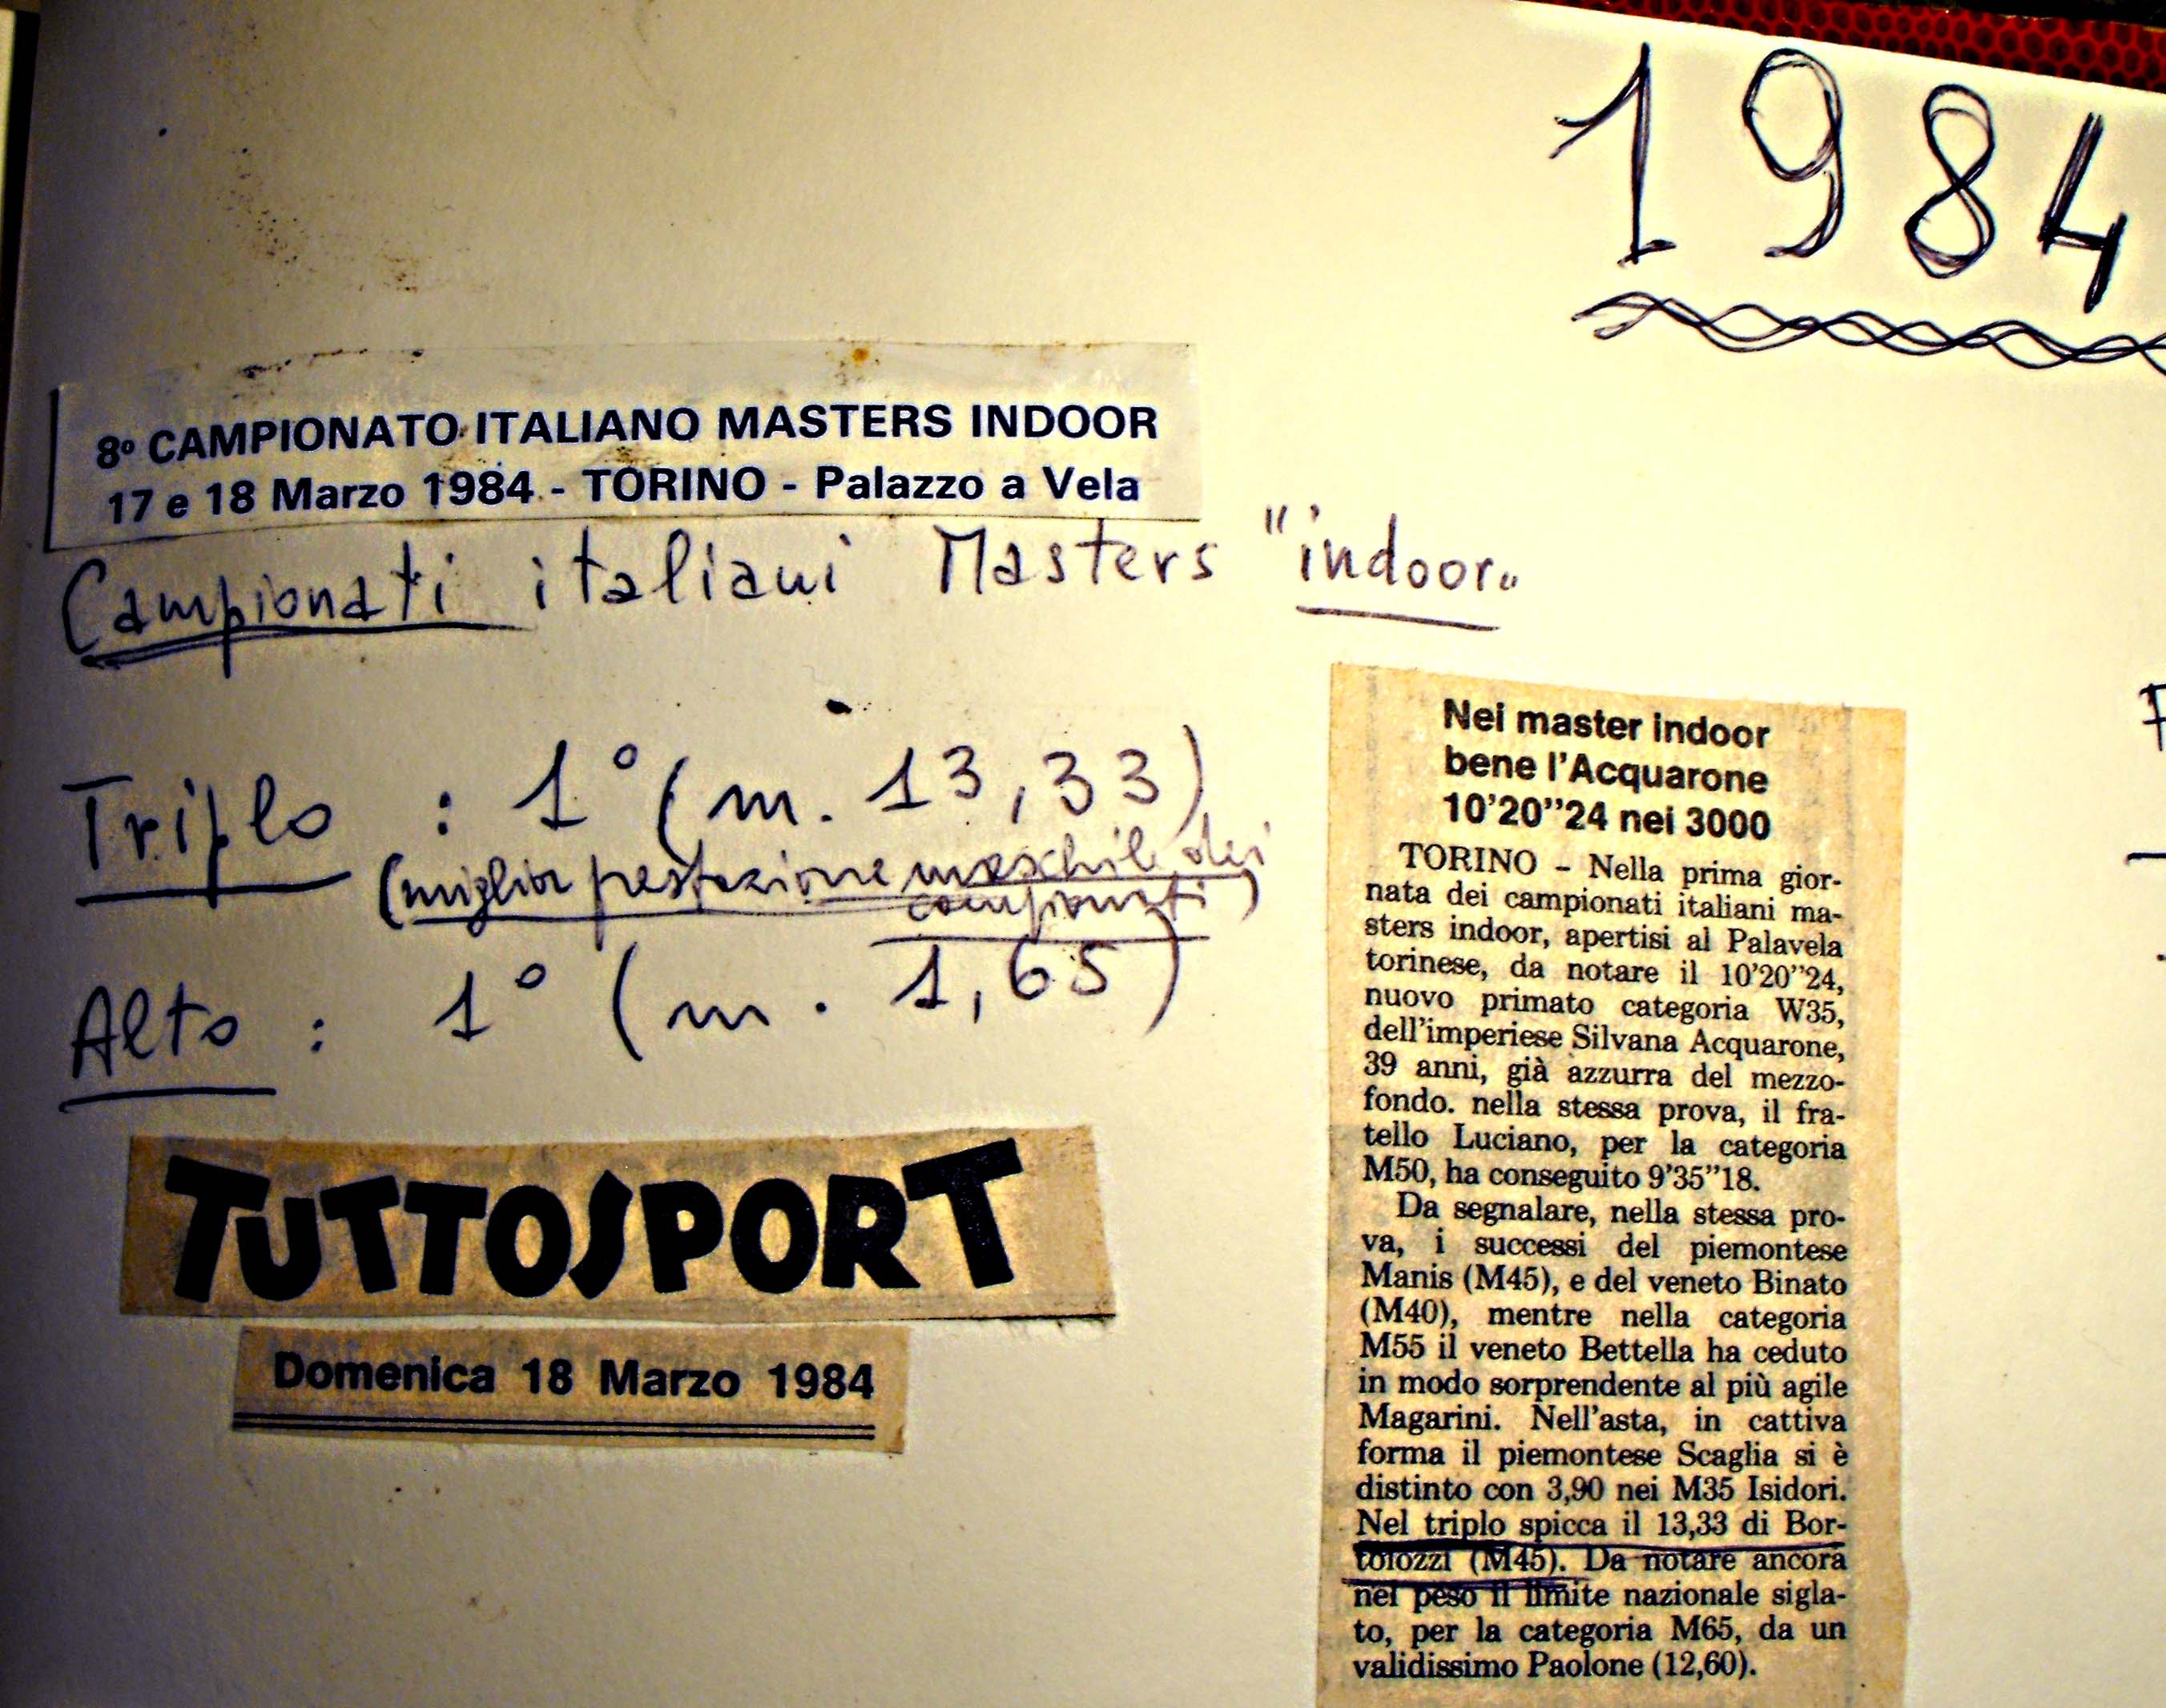 1984
8º CAMPIONATO ITALIANO MASTERS INDOOR
17 e 18 Marzo 1984 - TORINO - Palazzo a Vela
Campionati italiani Masters "indoor"
Triplo : 1° (m. 13,33)
(miglior prestazione maschile dei
campionati)
Alto : 1° (m. 1,65)
TUTTOSPORT
Domenica 18 Marzo 1984
Nei master indoor
bene l'Acquarone
10'20''24 nei 3000
TORINO - Nella prima gior-
nata dei campionati italiani ma-
sters indoor, apertisi al Palavela
torinese, da notare il 10'20''24,
nuovo primato categoria W35,
dell'imperiese Silvana Acquarone,
39 anni, già azzurra del mezzo-
fondo. nella stessa prova, il fra-
tello Luciano, per la categoria
M50, ha conseguito 9'35''18.
Da segnalare, nella stessa pro-
va, i successi del piemontese
Manis (M45), e del veneto Binato
(M40), mentre nella categoria
M55 il veneto Bettella ha ceduto
in modo sorprendente al più agile
Magarini. Nell'asta, in cattiva
forma il piemontese Scaglia si è
distinto con 3,90 nei M35 Isidori.
Nel triplo spicca il 13,33 di Bor-
tolozzi (M45). Da notare ancora
nel peso il limite nazionale sigla-
to, per la categoria M65, da un
validissimo Paolone (12,60).